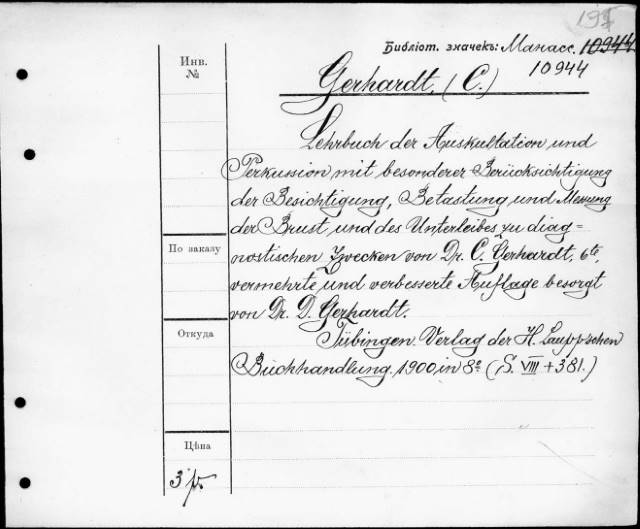 Библіот. значекъ: Манасс. 10944
10944
Инв.
№
Gerhardt, (C.)
Lehrbuch der Auskultation und
Perkussion mit besonderer Berücksichtigung
der Besichtigung, Betastung und Messung
der Brust und des Unterleibes zu diag=
nostischen Zwecken von Dr. C. Gerhardt, 6te,
vermehrte und verbesserte Auflage besorgt
von Dr. D. Gerhardt.
Tübingen. Verlag der H. Laupp'schen
Buchhandlung. 1900, in 8º (S. VIII + 381.)
По заказу
Откуда
Цѣна
3 р.